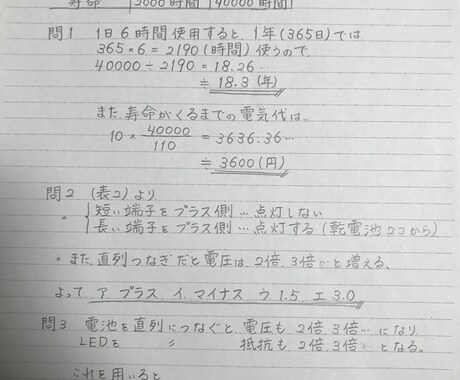 寿命 2000時間 40000時間
問1 1日6時間使用すると、1年(365日)では
365×6=2190(時間)使うので、
40000÷2190=18.26…
≒18.3(年)
また、寿命がくるまでの電気代は、
10×40000/110=3636.36…
≒3600(円)
問2 (表2)より
・短い端子をプラス側…点灯しない
長い端子をプラス側…点灯する(乾電池2コから)
・また、直列つなぎだと電圧は、2倍、3倍…と増える。
よって ア.プラス イ.マイナス ウ.1.5、エ.3.0
問3 電池を直列につなぐと、電圧も2倍、3倍…になり
LEDを 〃 抵抗も2倍、3倍…となる。
これを用いると